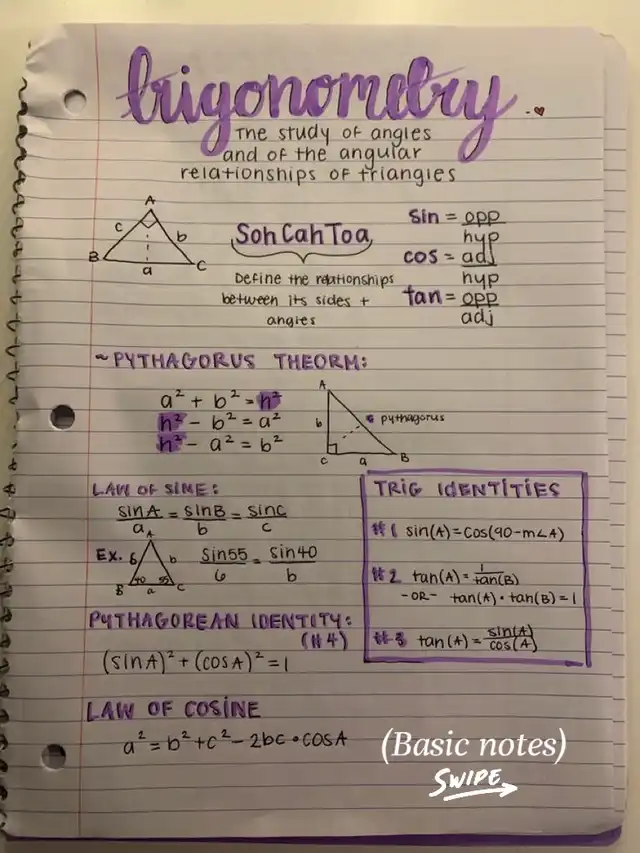 trigonometry
The study of angles
and of the angular
relationships of triangles
A
c
b
B
a
C
SohCahToa
Define the relationships
between its sides +
angies
sin = opp
hyp
cos = adj
hyp
tan = opp
adj
~PYTHAGORUS THEORM:
a² + b² = h²
h² - b² = a²
h² - a² = b²
A
b
pythagorus
C
a
B
LAW OF SINE:
sinA/a = sinB/b = sinC/c
EX.
A
6
b
40
55
B
a
C
Sin55/6 = sin40/b
PYTHAGOREAN IDENTITY:
(#4)
(sinA)² + (cosA)² = 1
TRIG IDENTITIES
#1 sin(A)=Cos(90-m∠A)
#2 tan(A) = 1/tan(B)
-OR- tan(A)·tan(B)=1
#3 tan(A) = sin(A)/cos(A)
LAW OF COSINE
a² = b² + c² - 2bc•cosA
(Basic notes)
SWIPE